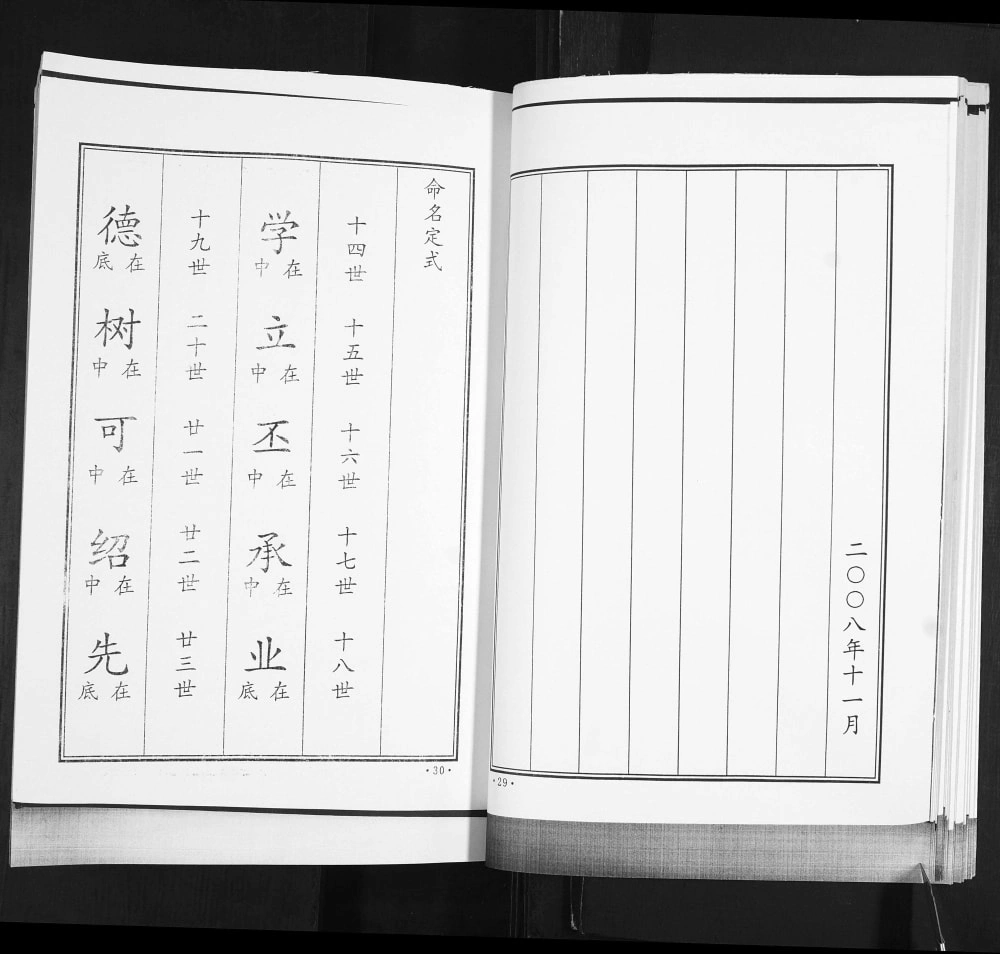 二〇〇八年十一月
·29·
命名定式
十四世 十五世 十六世 十七世 十八世
学在中 立在中 丕在中 承在中 业在底
十九世 二十世 廿一世 廿二世 廿三世
德在底 树在中 可在中 绍在中 先在底
·30·